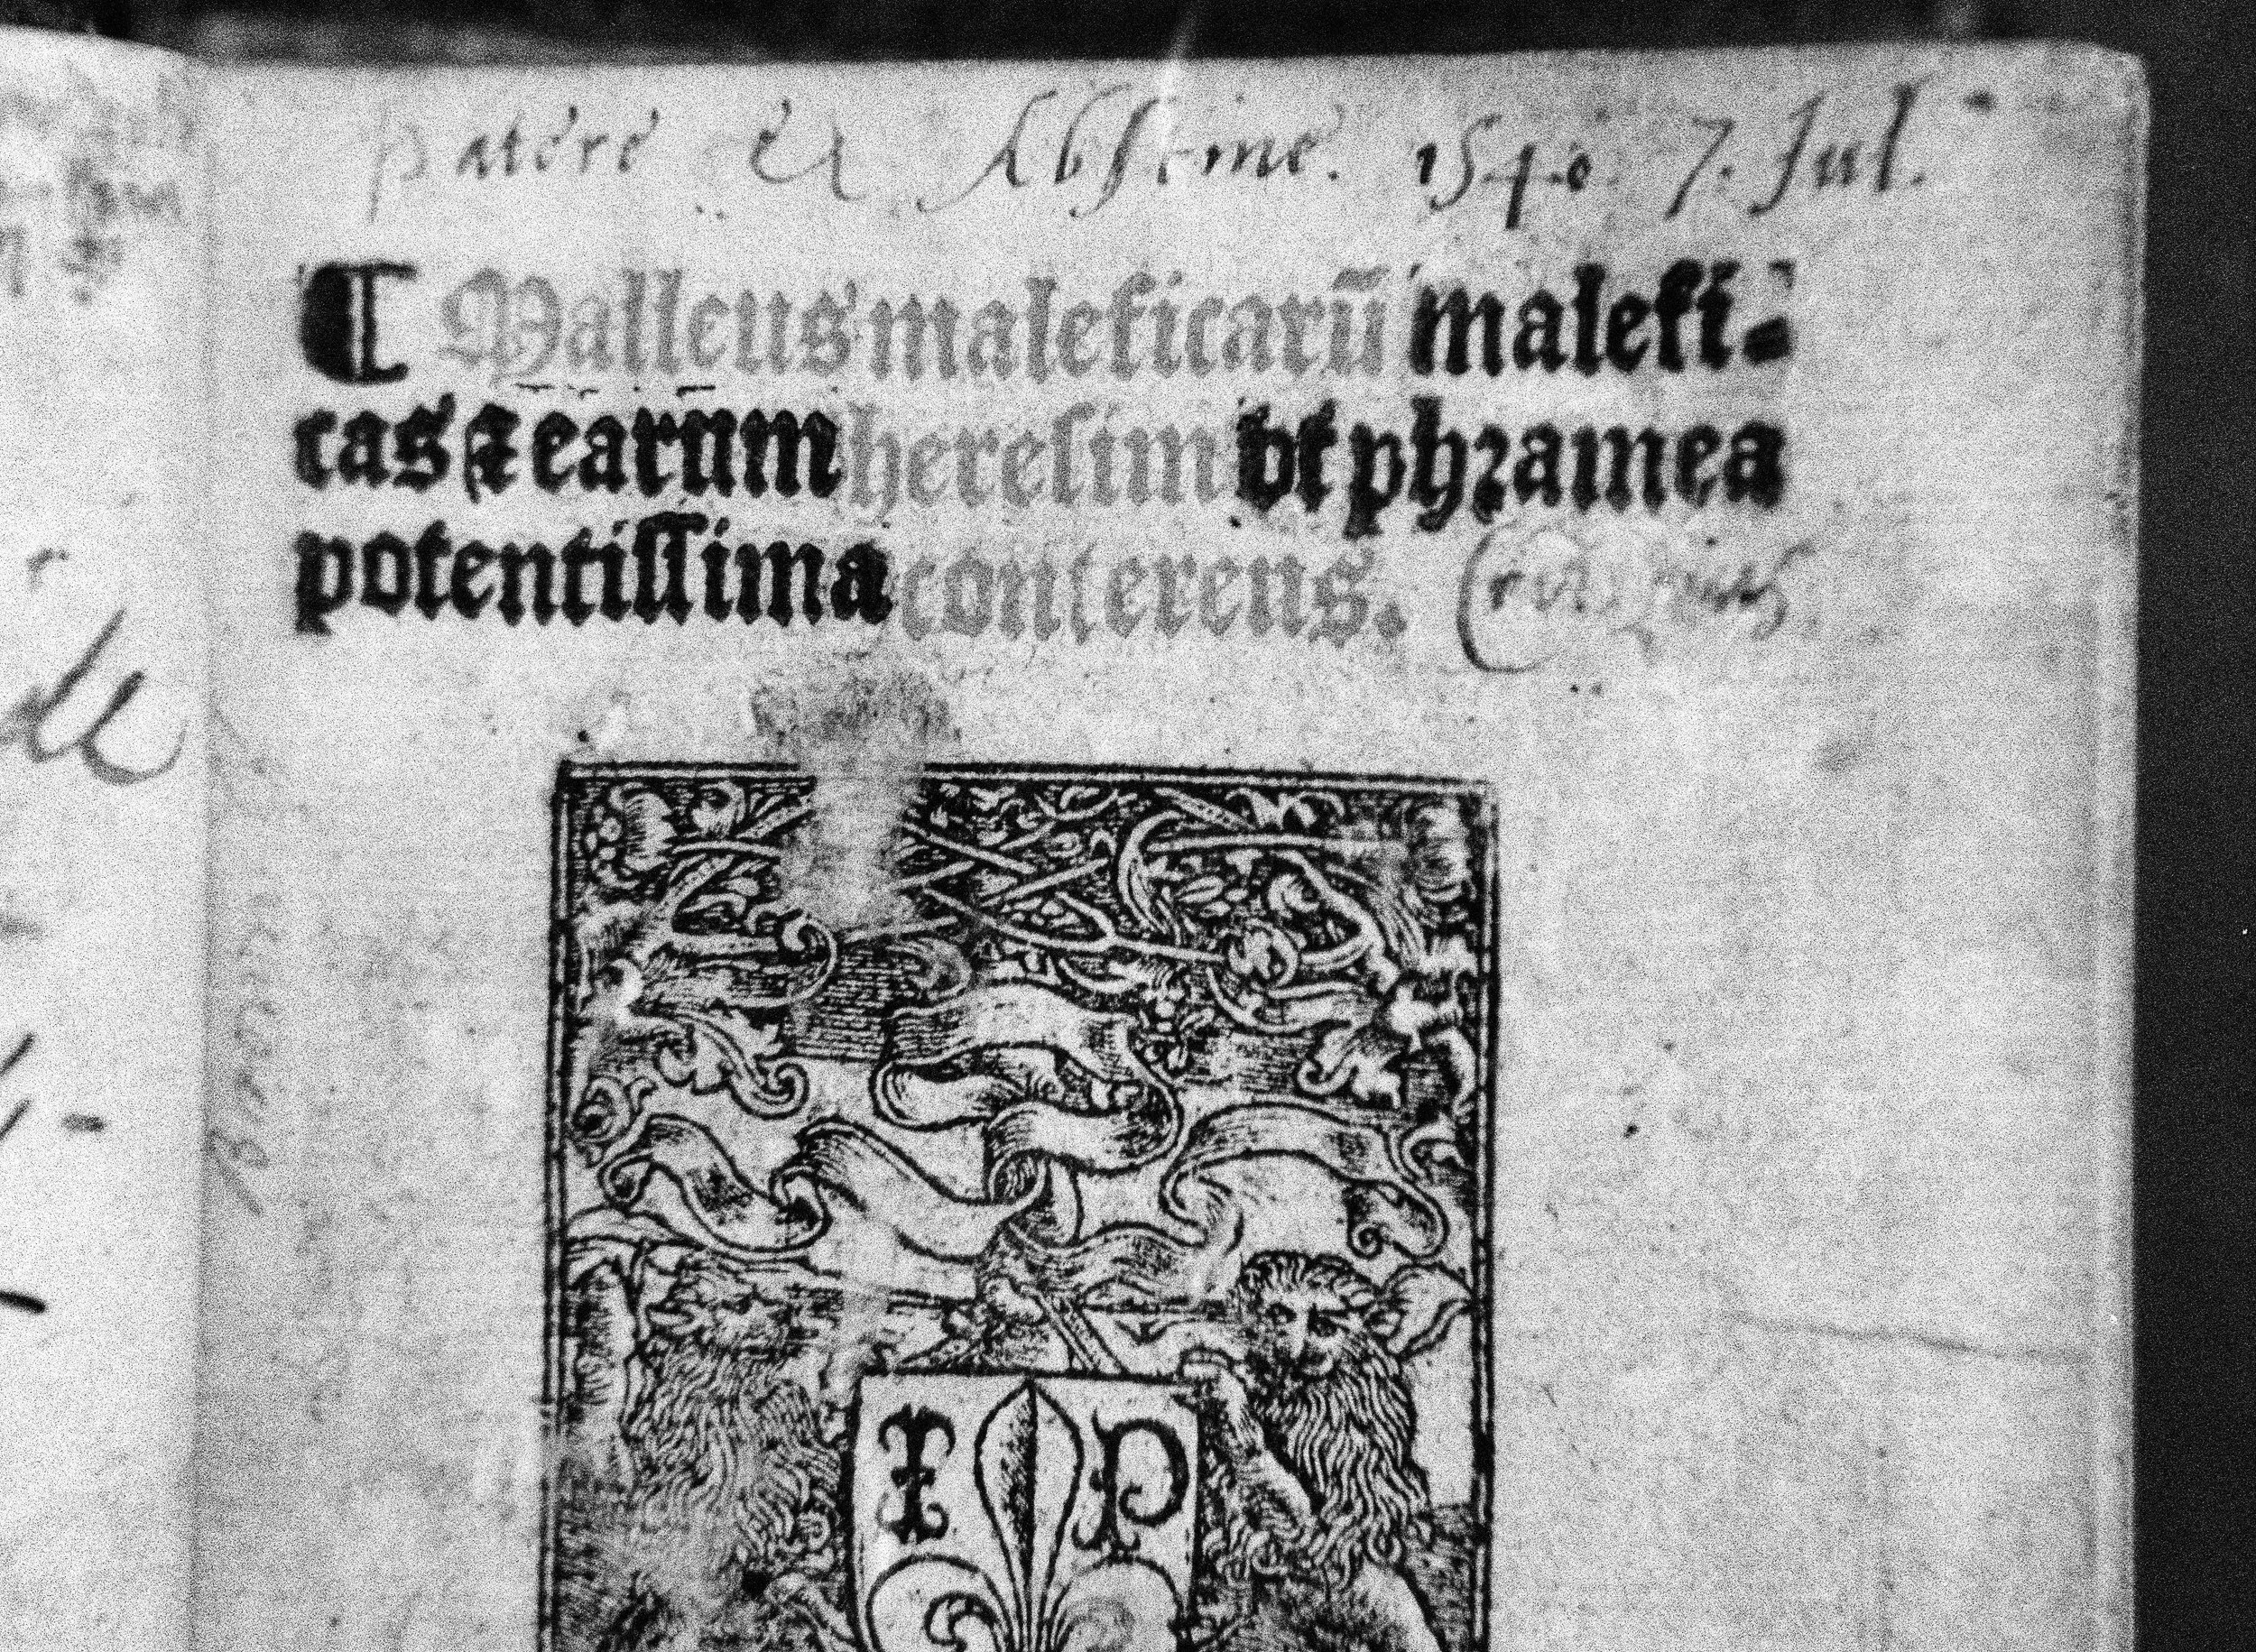 patere et Abstine. 1540 7. Jul.
¶ Malleus maleficarū malefi⸗
cas ⁊ earum heresim vt phramea
potentissima conterens.
I P